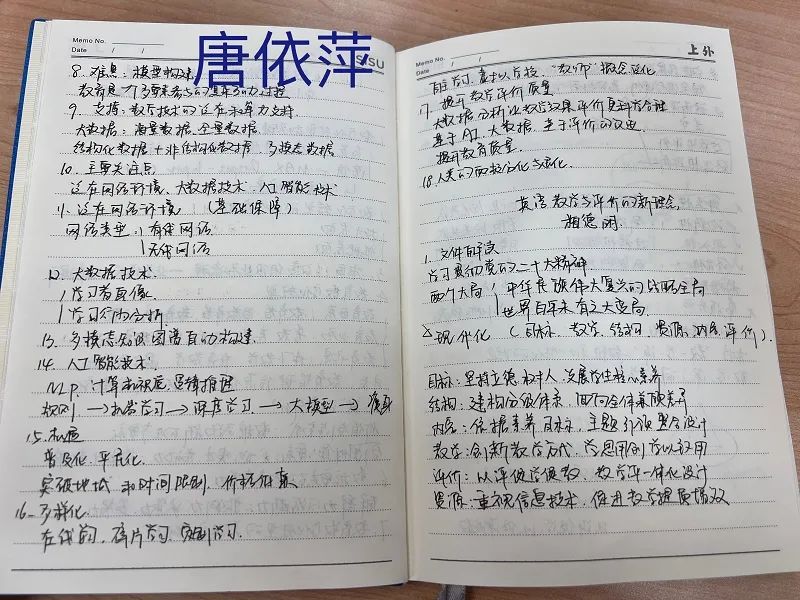 唐依萍
Memo No.
Date / /
SISU
8. 难点：模型构建
9. 支撑：教学技术的泛在和算力支持
大数据：海量数据、全量数据
结构化数据＋非结构化数据 多模态数据
10. 主要关注点
泛在网络环境、大数据技术、人工智能技术
11. 泛在网络环境 （基础保障）
网络类型：有线网络
无线网络
12. 大数据技术
学习者画像
学习行为分析
13. 多模态知识图谱自动构建
14. 人工智能技术
NLP、计算机视觉、逻辑推理
规则→机器学习→深度学习→大模型→
15.
普及化、平民化
突破地域和时间限制、价格低廉
16. 多样化
在线学习、碎片学习、定制学习
上外
Memo No.
Date / /
自主学习、 "教师"概念泛化
17. 提升教学评价质量
大数据分析让教学效果评价更科学合理
基于AI、大数据、
提升教育质量
18. 人类的两极分化与
英语教学与评价的新理念
梅德明
1. 文件解读
学习贯彻党的二十大精神
两个大局 中华民族伟大复兴的战略全局
世界百年未有之大变局
2. 现代化 （目标、教学、结构、资源、内容、评价）
目标：坚持立德树人，发展学生核心素养
结构：建构分级体系，面向全体兼顾差异
内容：依据素养目标，主题引领整合设计
教学：创新教学方式，学思用创学以致用
评价：以评促学促教，教学评一体化设计
资源：重视信息技术，促进教学提质增效